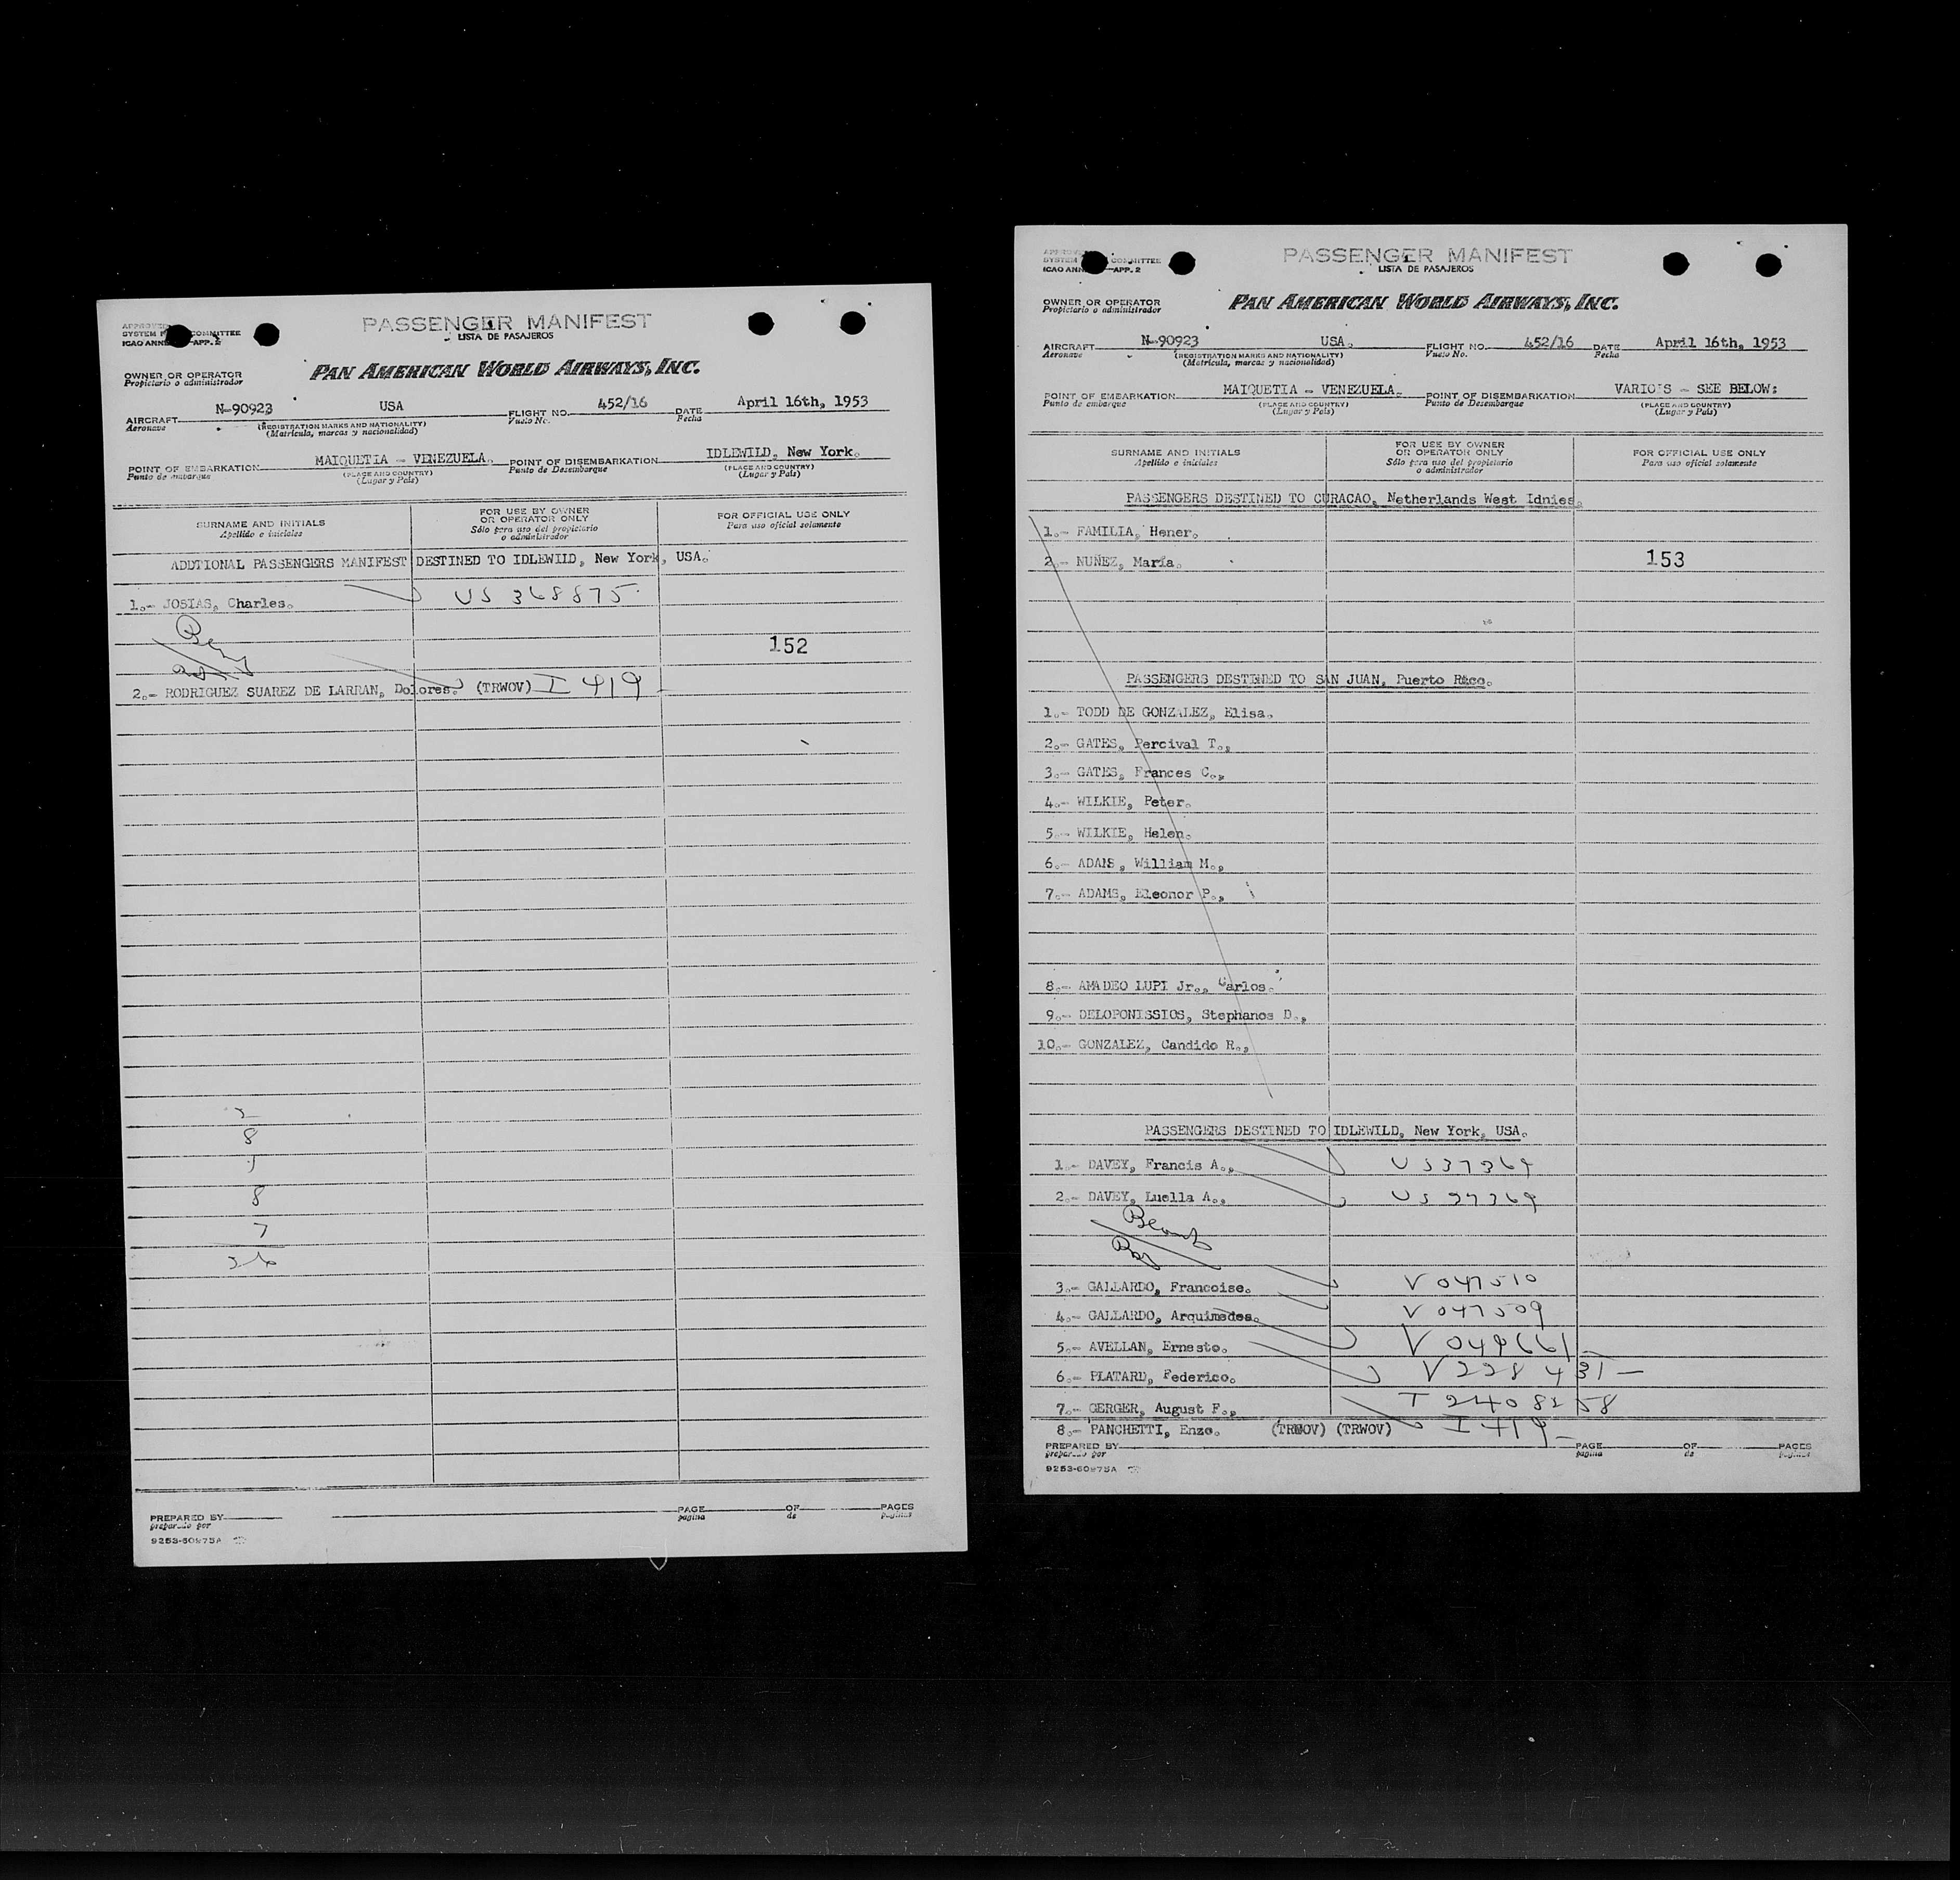 APPROVED
SYSTEM COMMITTEE
ICAO ANN APP. 2
PASSENGER MANIFEST
LISTA DE PASAJEROS
OWNER OR OPERATOR
Propietario o administrador
PAN AMERICAN WORLD AIRWAYS, INC.
AIRCRAFT N-90923 USA FLIGHT NO. 452/16 DATE April 16th, 1953
Aeronave (REGISTRATION MARKS AND NATIONALITY) Vuelo No. Fecha
(Matrícula, marcas y nacionalidad)
POINT OF EMBARKATION MAIQUETIA - VENEZUELA. POINT OF DISEMBARKATION IDLEWILD, New York.
Punto de embarque (PLACE AND COUNTRY) Punto de Desembarque (PLACE AND COUNTRY)
(Lugar y País) (Lugar y País)
SURNAME AND INITIALS FOR USE BY OWNER OR OPERATOR ONLY FOR OFFICIAL USE ONLY
Apellido e iniciales Sólo para uso del propietario o administrador Para uso oficial solamente
ADDTIONAL PASSENGERS MANIFEST DESTINED TO IDLEWILD, New York, USA.
1.- JOSIAS, Charles. US 368875
152
2.- RODRIGUEZ SUAREZ DE LARRAN, Dolores. (TRWOV) I 419
8
1
8
7
26
PREPARED BY PAGE OF PAGES
preparado por página de páginas
9253-60975A
SYSTEM COMMITTEE
ICAO ANN APP. 2
PASSENGER MANIFEST
LISTA DE PASAJEROS
OWNER OR OPERATOR
Propietario o administrador
PAN AMERICAN WORLD AIRWAYS, INC.
AIRCRAFT N-90923 USA. FLIGHT NO. 452/16 DATE April 16th, 1953
Aeronave (REGISTRATION MARKS AND NATIONALITY) Vuelo No. Fecha
(Matrícula, marcas y nacionalidad)
POINT OF EMBARKATION MAIQUETIA - VENEZUELA. POINT OF DISEMBARKATION VARIOUS - SEE BELOW:
Punto de embarque (PLACE AND COUNTRY) Punto de Desembarque (PLACE AND COUNTRY)
(Lugar y País) (Lugar y País)
SURNAME AND INITIALS FOR USE BY OWNER OR OPERATOR ONLY FOR OFFICIAL USE ONLY
Apellido e iniciales Sólo para uso del propietario o administrador Para uso oficial solamente
PASSENGERS DESTINED TO CURACAO, Netherlands West Idnies.
1.- FAMILIA, Hener.
2.- NUÑEZ, María. 153
PASSENGERS DESTINED TO SAN JUAN, Puerto Rico.
1.- TODD DE GONZALEZ, Elisa.
2.- GATES, Percival T.,
3.- GATES, Frances C.,
4.- WILKIE, Peter.
5.- WILKIE, Helen.
6.- ADAMS, William M.,
7.- ADAMS, Eleonor P.,
8.- AMADEO LUPI Jr., Carlos.
9.- DELOPONISSIOS, Stephanos D.,
10.- GONZALEZ, Candido R.,
PASSENGERS DESTINED TO IDLEWILD, New York, USA.
1.- DAVEY, Francis A., US 37369
2.- DAVEY, Luella A., US 37369
3.- GALLARDO, Francoise. V 047510
4.- GALLARDO, Arquimedes. V 047509
5.- AVELLAN, Ernesto. V 049661
6.- PLATARD, Federico. V 228431
7.- GERGER, August F., T 2408258
8.- PANCHETTI, Enzo. (TRWOV) (TRWOV) I 419
PREPARED BY PAGE OF PAGES
preparado por página de páginas
9253-60975A